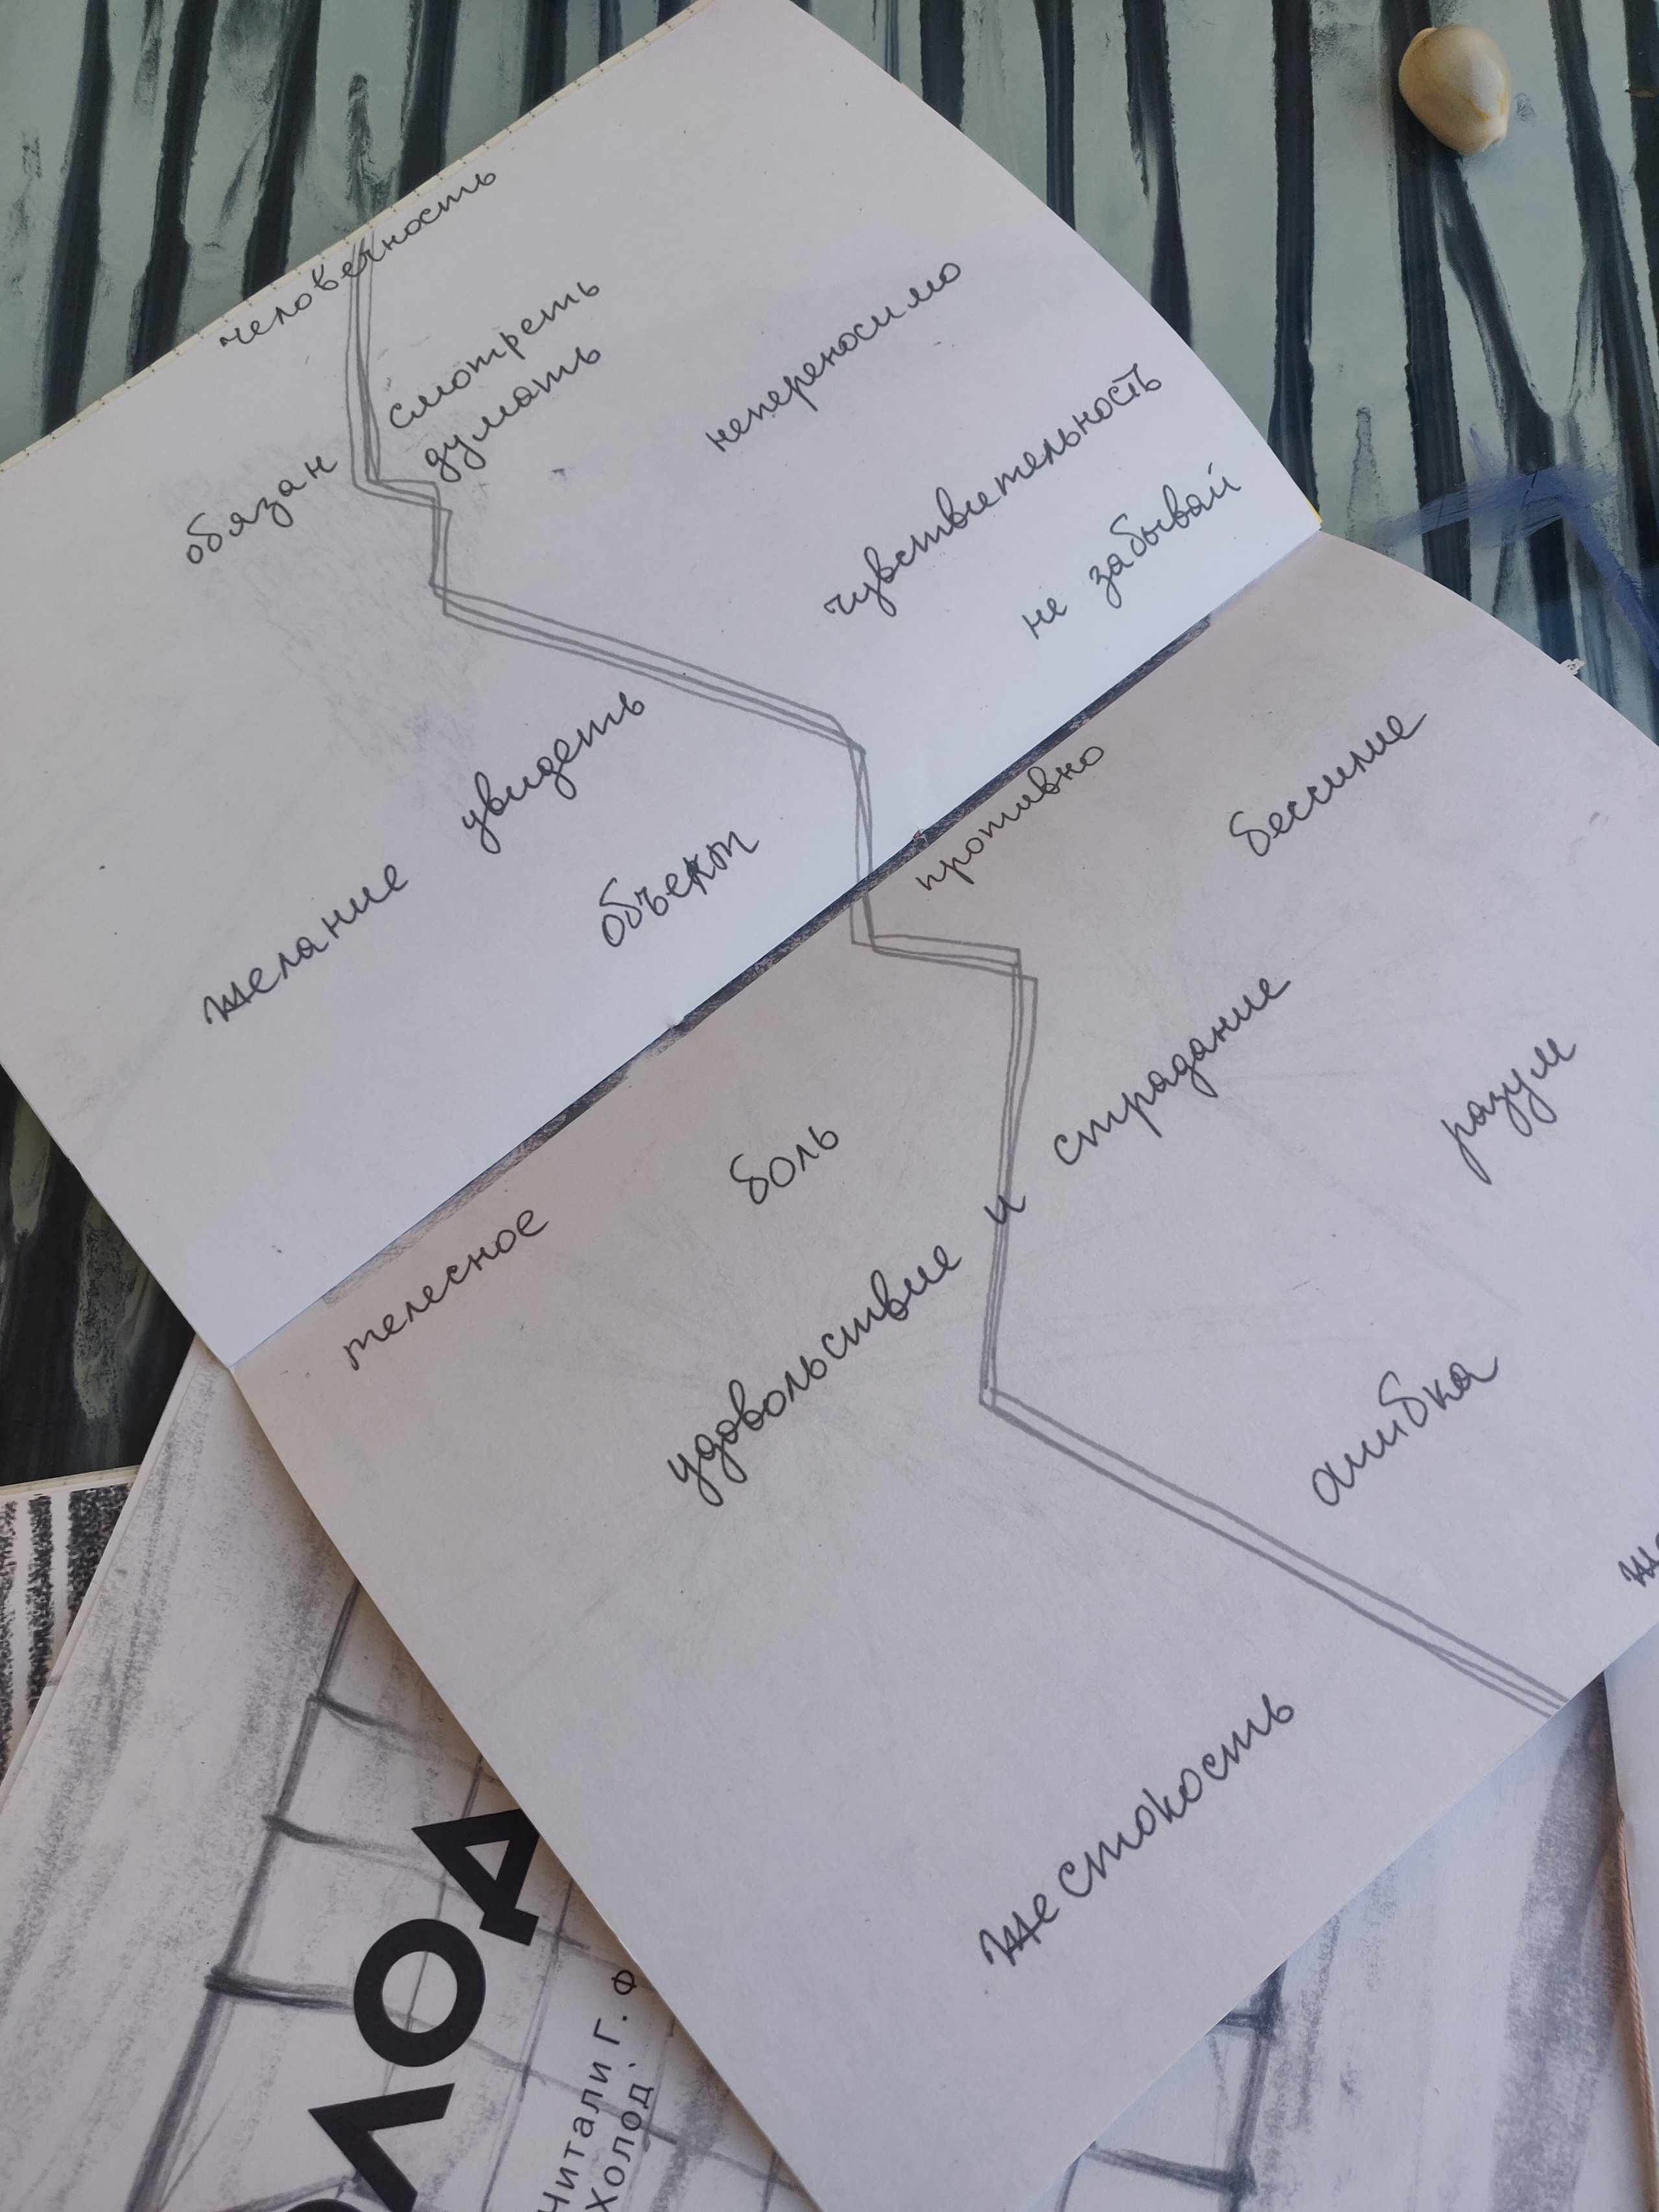 человечность
смотреть
думать
обязан
непереносимо
чувствительность
не забывай
желание увидеть
объект
противно
бессилие
телесное
боль
удовольствие и страдание
разум
ошибка
жестокость
ОЛОД
Читали Г. Ф
Холод